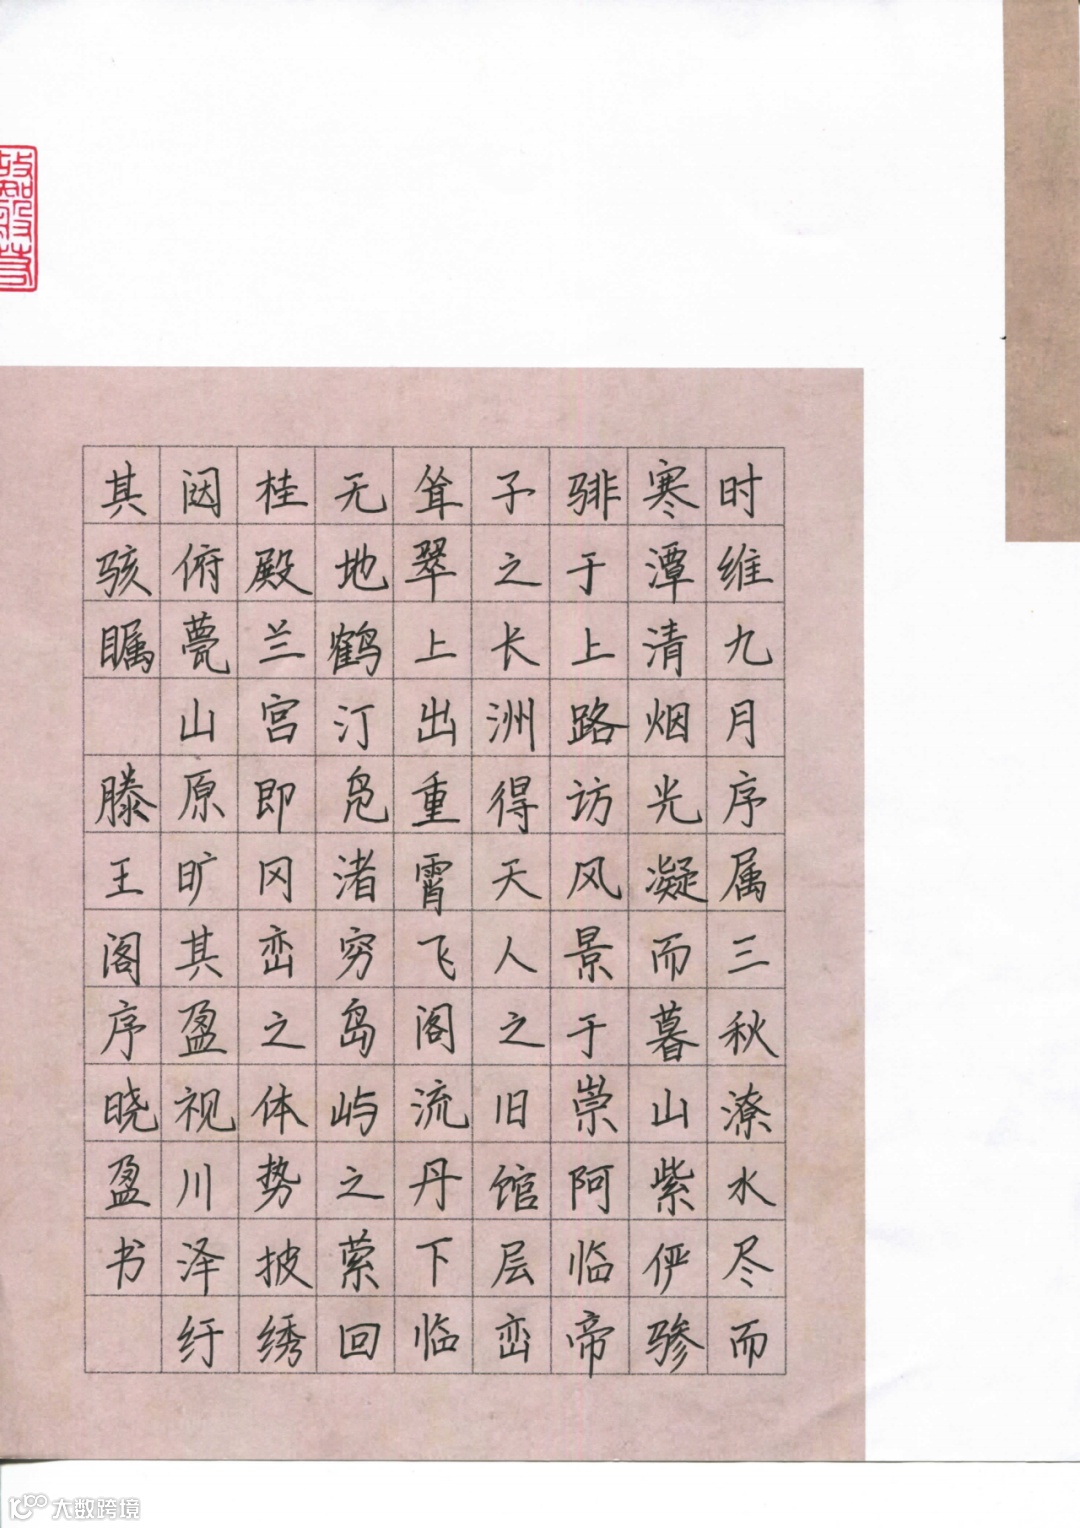 时维九月序属三秋潦水尽而
寒潭清烟光凝而暮山紫俨骖
𬴂于上路访风景于崇阿临帝
子之长洲得天人之旧馆层峦
耸翠上出重霄飞阁流丹下临
无地鹤汀凫渚穷岛屿之萦回
桂殿兰宫即冈峦之体势披绣
闼俯甍山原旷其盈视川泽纡
其骇瞩 滕王阁序晓盈书
大数跨境